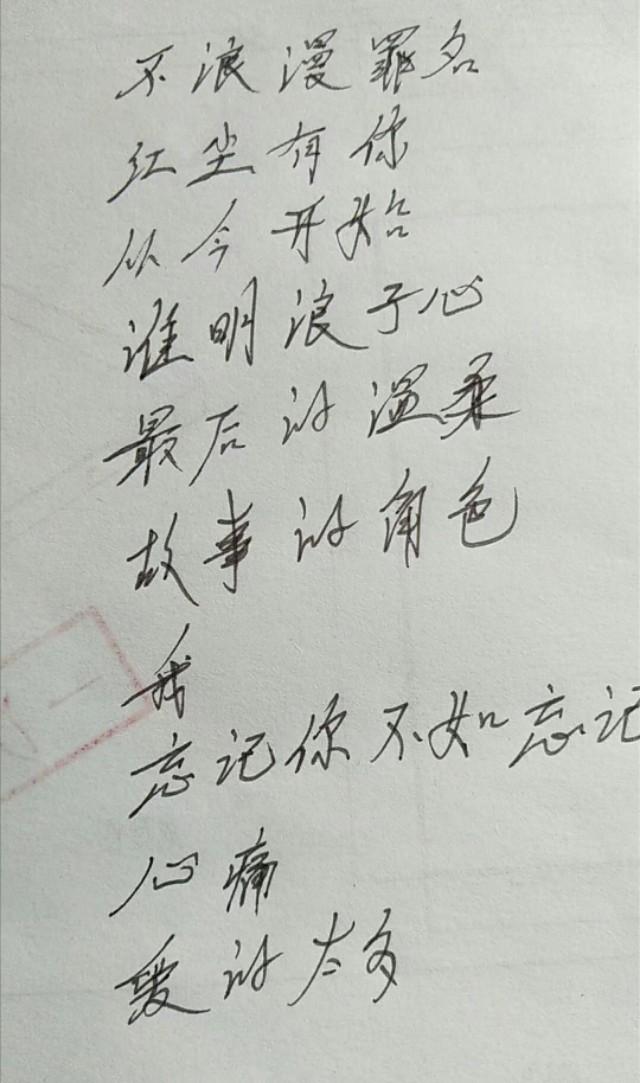 不浪漫罪名
红尘有你
从今开始
谁明浪子心
最后的温柔
故事的角色
我
忘记你不如忘记
心痛
爱的太多